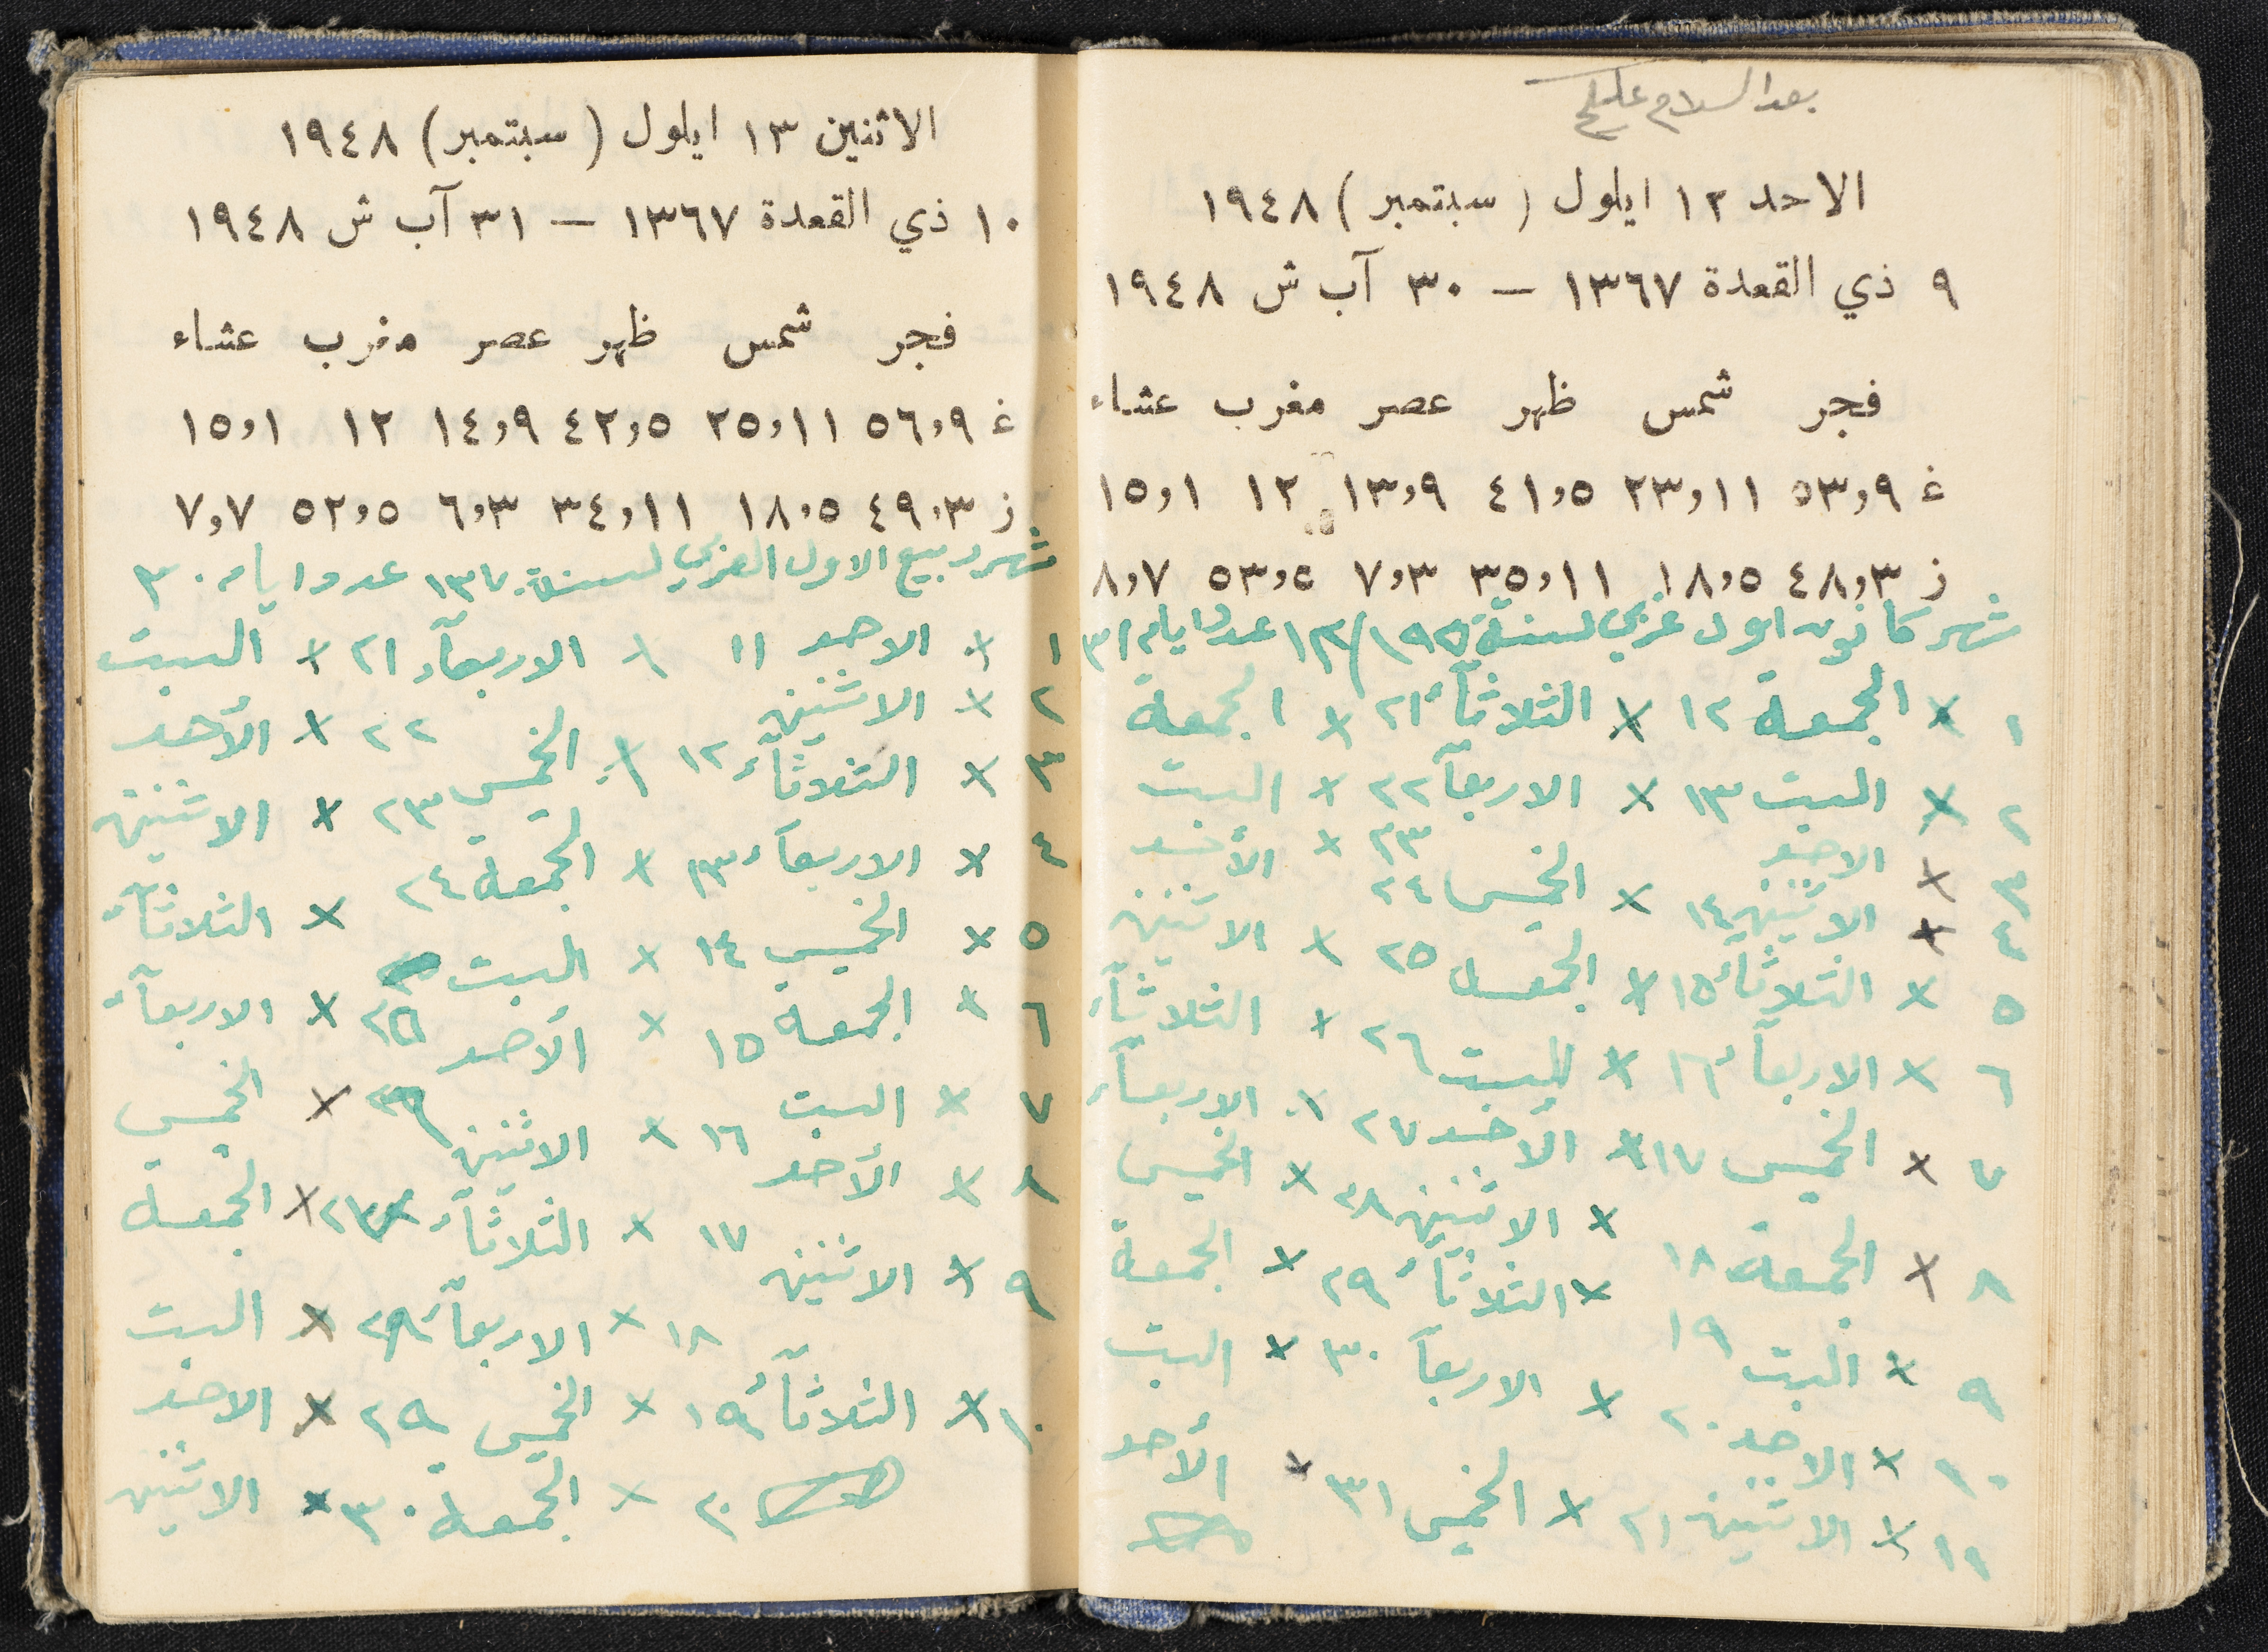 بعد السلام عليكم
الاحد ١٢ ايلول ( سبتمبر ) ١٩٤٨
٩ ذي القعدة ١٣٦٧ — ٣٠ آب ش ١٩٤٨
فجر شمس ظهر عصر مغرب عشاء
غ ٥٣،٩ ٢٣،١١ ٤١،٥ ١٣،٩ ١٢ ١٥،١
ز ٤٨،٣ ١٨،٥ ٣٥،١١ ٧،٣ ٥٣،٥ ٨،٧
شهر كانون اول غربي لسنة ١٩٥ / ١٢ عدد ايام ٣١
١ × الجمعة ١٢ × الثلاثآء ٢١ × الجمعة
٢ × السبت ١٣ × الاربعآ ٢٢ × السبت
٣ × الاحد ١٤ × الخميس ٢٣ × الأحد
٤ × الاثنين ١٥ × الجمعة ٢٤ × الاثنين
٥ × الثلاثآء ١٦ × السبت ٢٥ × الثلاثآء
٦ × الاربعآء ١٧ × الأحد ٢٦ × الاربعآء
٧ × الخميس × الاثنين ٢٧ × الخميس
٨ × الجمعة ١٨ × الثلاثآء ٢٨ × الجمعة
٩ × السبت ١٩ × الاربعآ ٢٩ × السبت
١٠ × الاحد ٢٠ × الخميس ٣٠ × الأحد
١١ × الاثنين ٢١ ٣١
الاثنين ١٣ ايلول ( سبتمبر ) ١٩٤٨
١٠ ذي القعدة ١٣٦٧ — ٣١ آب ش ١٩٤٨
فجر شمس ظهر عصر مغرب عشاء
غ ٥٦،٩ ٢٥،١١ ٤٢،٥ ١٤،٩ ١٢ ١٥،١
ز ٤٩،٣ ١٨،٥ ٣٤،١١ ٦،٣ ٥٢،٥ ٧،٧
شهر ربيع الاول العربي لسنة ١٣٧٠ عدد ايام ٣٠
١ × الاحد ١١ × الاربعآء ٢١ × السبت
٢ × الاثنين ١٢ × الخميس ٢٢ × الأحد
٣ × الثلاثآء ١٣ × الجمعة ٢٣ × الاثنين
٤ × الاربعآء ١٤ × السبت ٢٤ × الثلاثآء
٥ × الخميس ١٥ × الأحد ٢٥ × الاربعآء
٦ × الجمعة ١٦ × الاثنين ٢٦ × الخميس
٧ × السبت ١٧ × الثلاثآء ٢٧ × الجمعة
٨ × الأحد ١٨ × الاربعآء ٢٨ × السبت
٩ × الاثنين ١٩ × الخميس ٢٩ × الاحد
١٠ × الثلاثآء ٢٠ × الجمعة ٣٠ × الاثنين